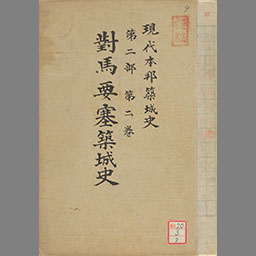 現代本邦築城史
第二部 第二巻
對馬要塞築城史